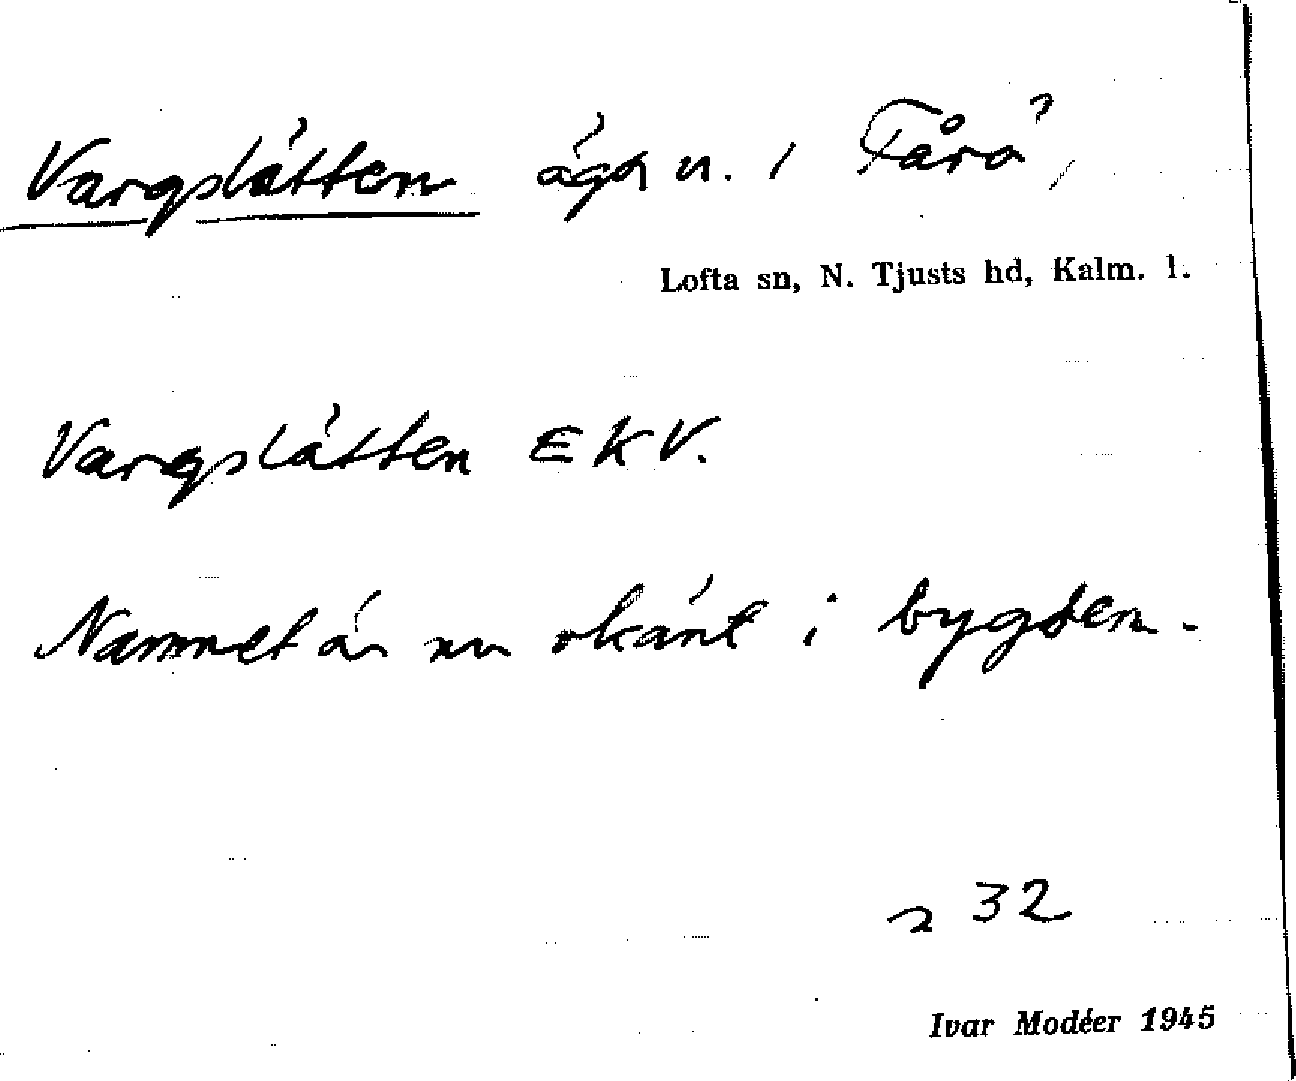 Vargslätten ägon. i Fårö,
Lofta sn, N. Tjusts hd, Kalm. l.
Vargslätten EKV.
Namnet är nu okänt i bygden.
32
Ivar Modéer 1945